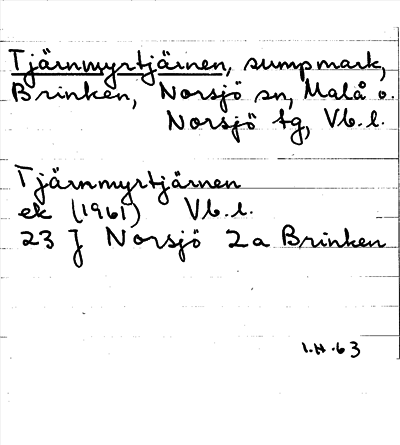 Tjärnmyrtjärnen, sumpmark,
Brinken, Norsjö sn, Malå o.
Norsjö tg, Vb. l.
Tjärnmyrtjärnen
ek (1961) Vb. l.
23 J Norsjö 2a Brinken
I.H. 63